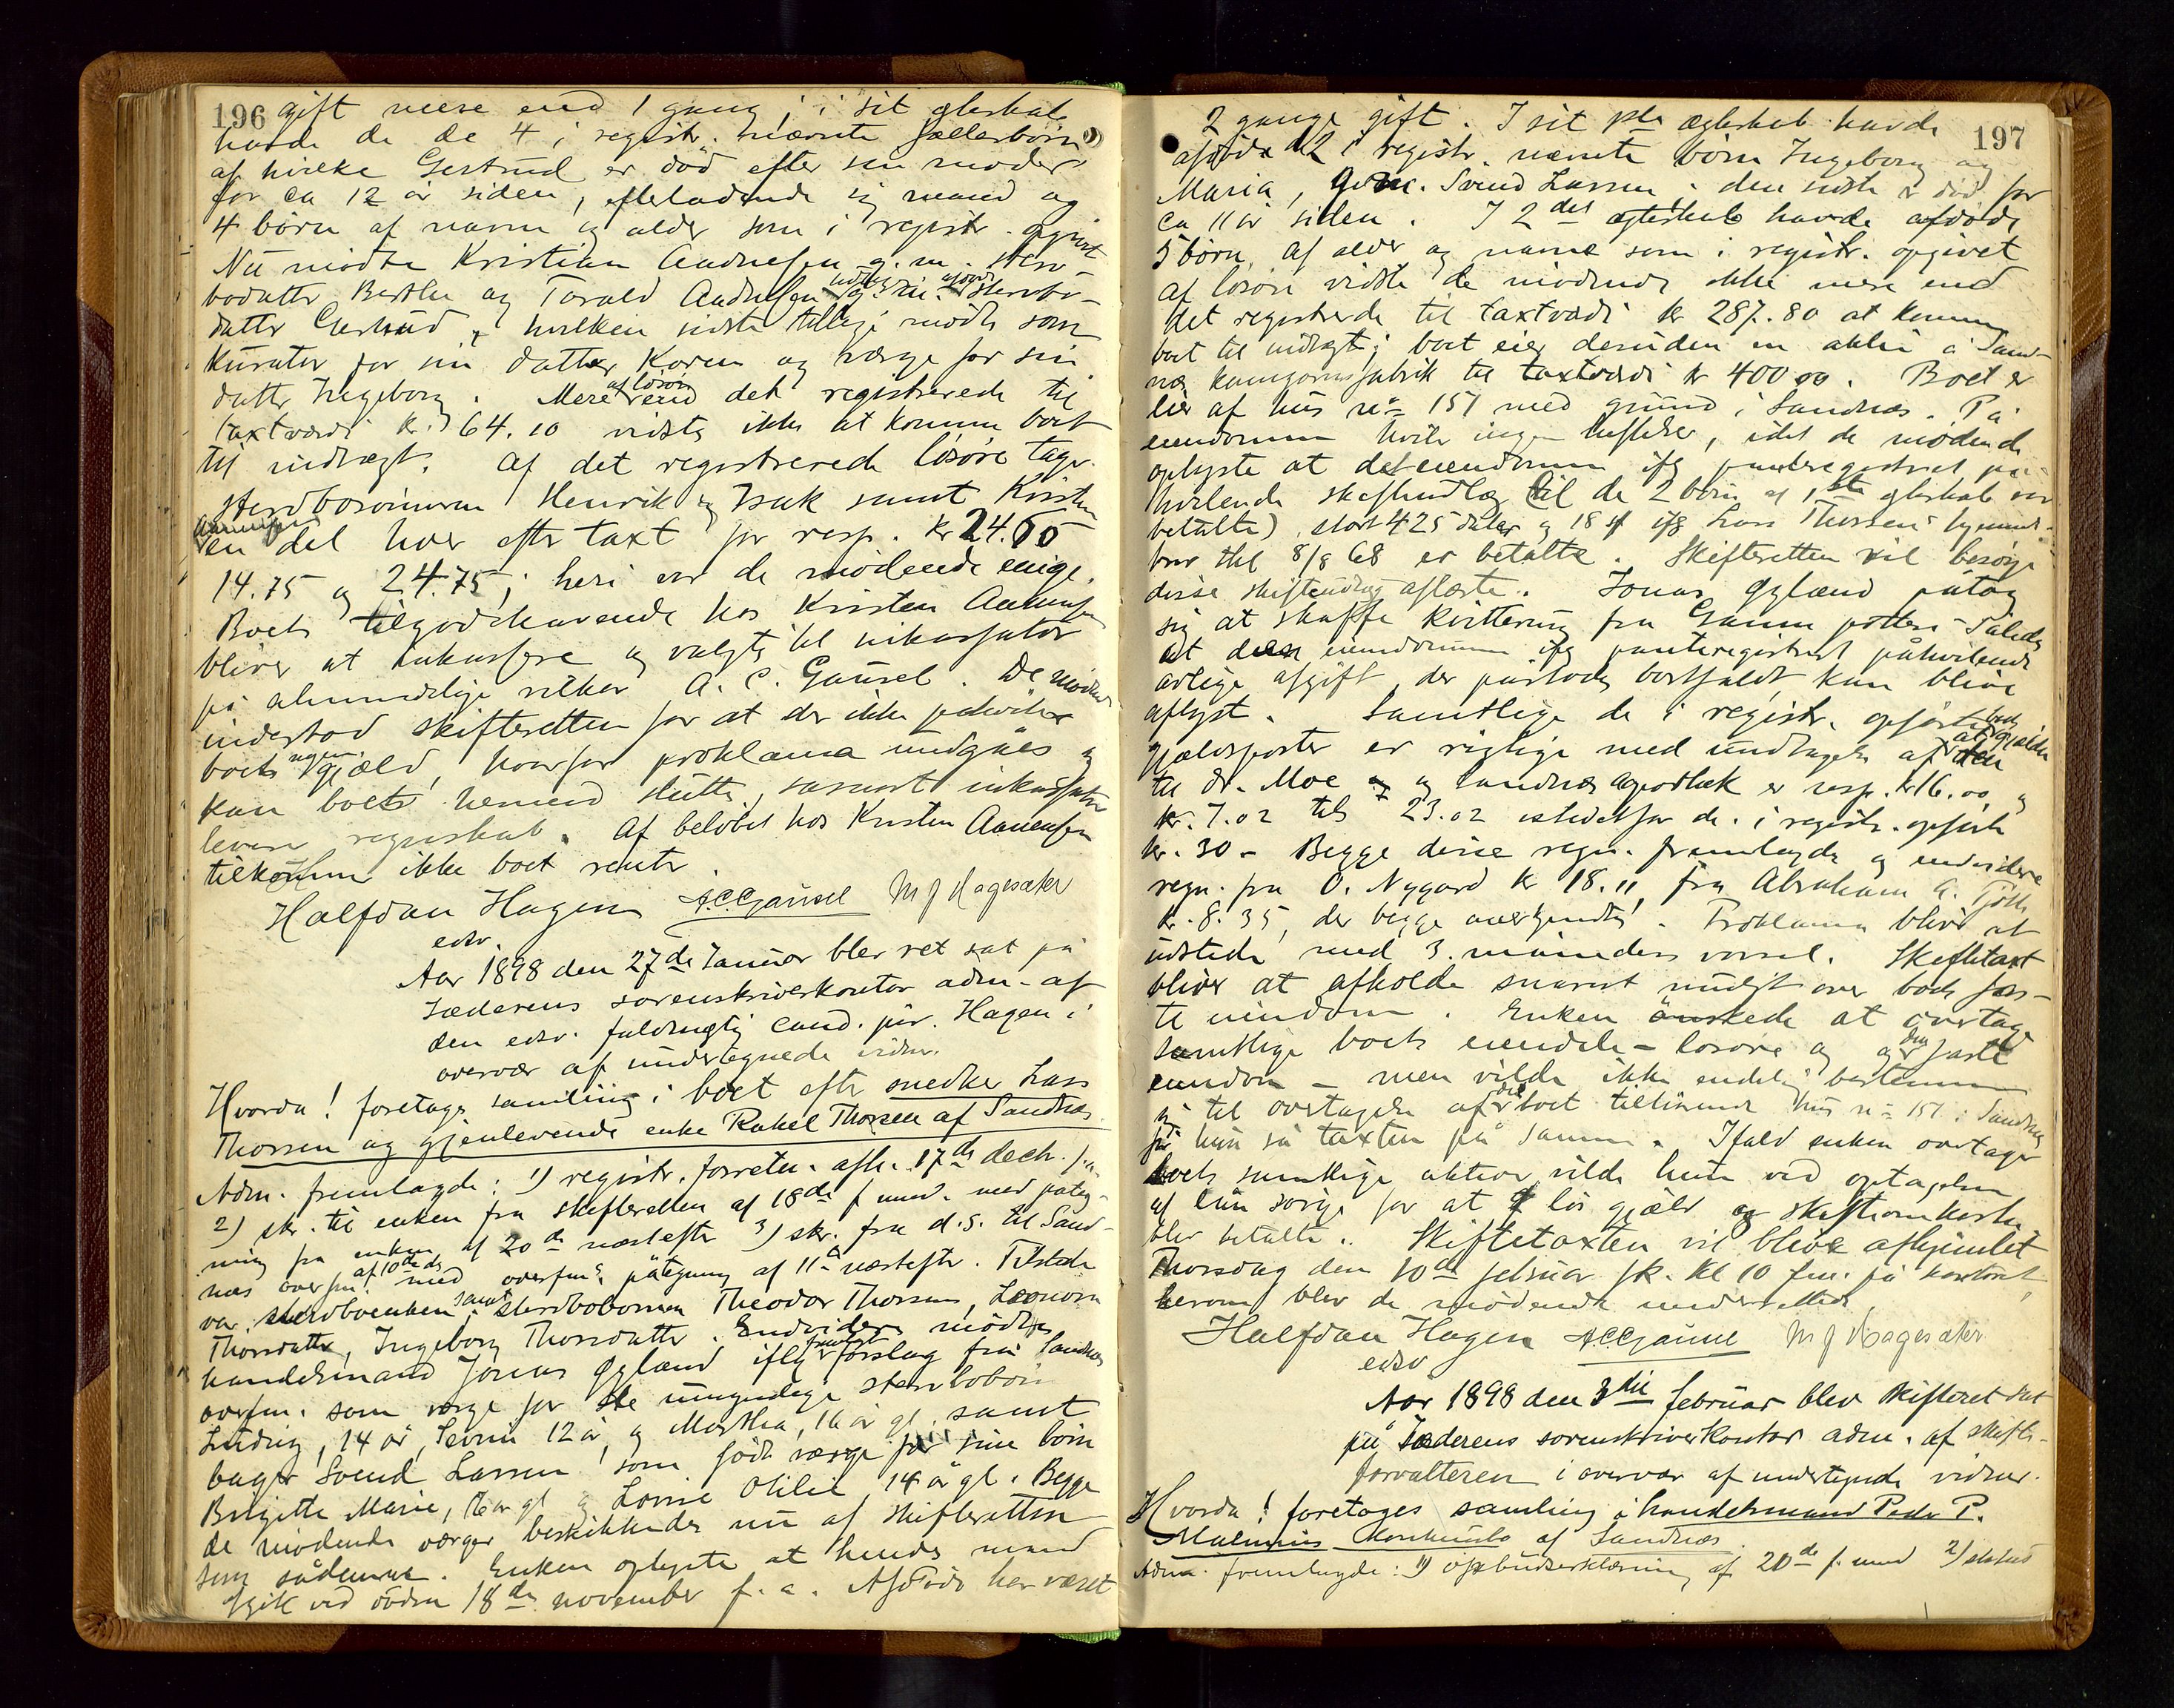 196 gift mere end 1 gang; i sit ægteskab
havde de de 4 i registr. nævnte fællesbørn
af hvilke Gertrud er död efter sin moder
for ca 12 år siden, efterladende sig mand og
4 börn af navn og alder som i registr. opgivet
Nu mödte Kristian Aadnesen g. m. sterv-
bodatter Berthe og Torald Aadnesen g. m. afdöde stervbo-
datter Gertrud, hvilken sidste tillige mödte som
kurator for sin datter Karen og værge for sin
datter Ingeborg. Mere af lösöre end det registrerede til
taxtværdi kr. 364.10 vidstes ikke at komme boet
til indtægt. Af det registrerede lösöre tager
stervbosönnerne Henrik og Isak samt Kristen
Aanensen en del hver efter taxt for resp. kr 24.60
14.75 og 24.75; heri var de mödende enige.
Boets tilgodehavende hos Kristen Aanensen
bliver at inkassere og valgtes til inkassator
på almindelige vilkår A. C. Gausel. De mödende
indestod skifteretten for at der ikke påhviler
boets nogen gjæld, hvorfor proklama undgåes og
kan boets hermed slutte, snarest inkassator
leverer regnskab. Af belöbet hos Kristen Aanensen
tilkommer ikke boet rente.
Halfdan Hagen A.C.Gausel M J Hagesæter
edsv.
Aar 1898 den 27de Januar blev ret sat på
Jæderens sorenskriverkontor adm. af
den edsv. fuldmægtig cand. jur. Hagen i
overvær af undertegnede vidner.
Hvorda! foretages samling i boet efter snedker Lars
Thorsen og gjenlevende enke Rakel Thorsen af Sandnæs
Adm. fremlagde: 1) registr. forretn. afh. 17de decb. f. a.
2) skr. til enken fra skifteretten af 18de f. mnd. med påteg-
ning fra enken af 20de næstefter 3) skr. fra d. s. til Sand-
næs overfm. af 10de ds med overfm's påtegning af 11te næstefter. Tilstede
var stervboenken samt stervbobörnene Theodor Thorsen, Leonora
Thorsdatter, Ingeborg Thorsdatter. Endvidere mödte
handelsmand Jonas Øglænd iflg forslag fra Sandnæs
overfm. som værge for de umyndige stervbobörn
Ludvig, 14 år, Severin 12 år, og Martha, 16 år gl. samt
bager Svend Larsen som födt værge for sine börn
Birgitte Marie, 16 år gl og Lovise Otilie 14 år gl. Begge
de mödende værger beskikkedes nu af skifteretten
som sådanne. Enken oplyste at hendes mand
afgik ved döden 18de november f. a. Afdöde har været
197
2 gange gift. I sit 1ste ægteskab havde
afdöde de 2 i registr. nævnte börn Ingeborg og
Maria, g. m. Svend Larsen; den sidste er död for
ca 11 år siden. I 2det ægteskab havde afdöde
5 börn af alder og navne som i registr. opgivet
Af lösöre vidste de mödende ikke mere end
det registrerede til taxtværdi kr 287.80 at komme
boet til indtægt; boet eier desuden en aktie i Sand-
næs kamgarnsfabrik til taxtværdi kr 400.00. Boet er
eier af hus no 151 med grund i Sandnæs. På
eiendommen hviler ingen heftelser, idet de mödende
oplyste at det eiendommen iflg panteregistret på-
hvilende skifteudlæg til de 2 börn af 1ste ægteskab var
betalte), stort 425 daler og 18 sk iflg Lars Thorsens hjemmels-
brev thl 8/8 68 er betalte. Skifteretten vil besörge
disse skifteudlæg aflæste. Jonas Øglænd påtog
sig at skaffe kvittering fra Gann potteri. Således
at den eiendommen iflg panteregistret påhvilende
årlige afgift, der påstodes bortfaldt, kan blive
aflyst. Samtlige de i registr. opförte boets
gjældsposter er rigtige med undtagelse af at gjælden
til dr. Moe og Sandnæs apothek er resp. kr 16.00 og
kr. 7.02 tils 23.02 istedetfor de i registr. opförte
kr. 30 - Begge disse regn. fremlagdes og endvidere
regn. fra O. Nygaard kr 18.11, fra Abraham G. Tjöth
kr. 8.35, der begge anerkjendtes. Proklama bliver at
udstede med 3 måneders varsel. Skiftetaxt
bliver at afholde snarest muligt over boets fas-
te eiendom. Enken önskede at overtage
samtlige boets eiendele - lösöre og den faste
eiendom - men vilde ikke endelig bestemme
sig til overtagelse af det boet tilhörende hus no 151 i Sandnæs
för hun så taxten på samme. Ifald enken overtager
boets samtlige aktiver vilde hun ved optagelsen
af lån sörge for at lös gjæld og skifteomkostn.
blev betalte. Skiftetaxten vil blive afhjemlet
Thorsdag den 10de februar fk. kl 10 fm. på kontoret,
herom blev de mödende underrettede.
Halfdan Hagen A.C.Gausel M J Hagesæter
edsv
Aar 1898 den 3die februar blev skifteret sat
på Jæderens sorenskriverkontor adm. af skifte-
forvalteren i overvær af undertegnede vidner.
Hvorda! foretages samling i handelsmand Peder P.
Malmins konkursbo af Sandnæs.
Adm. fremlagde: 1) opbudserklæring af 20de f. mnd 2) status